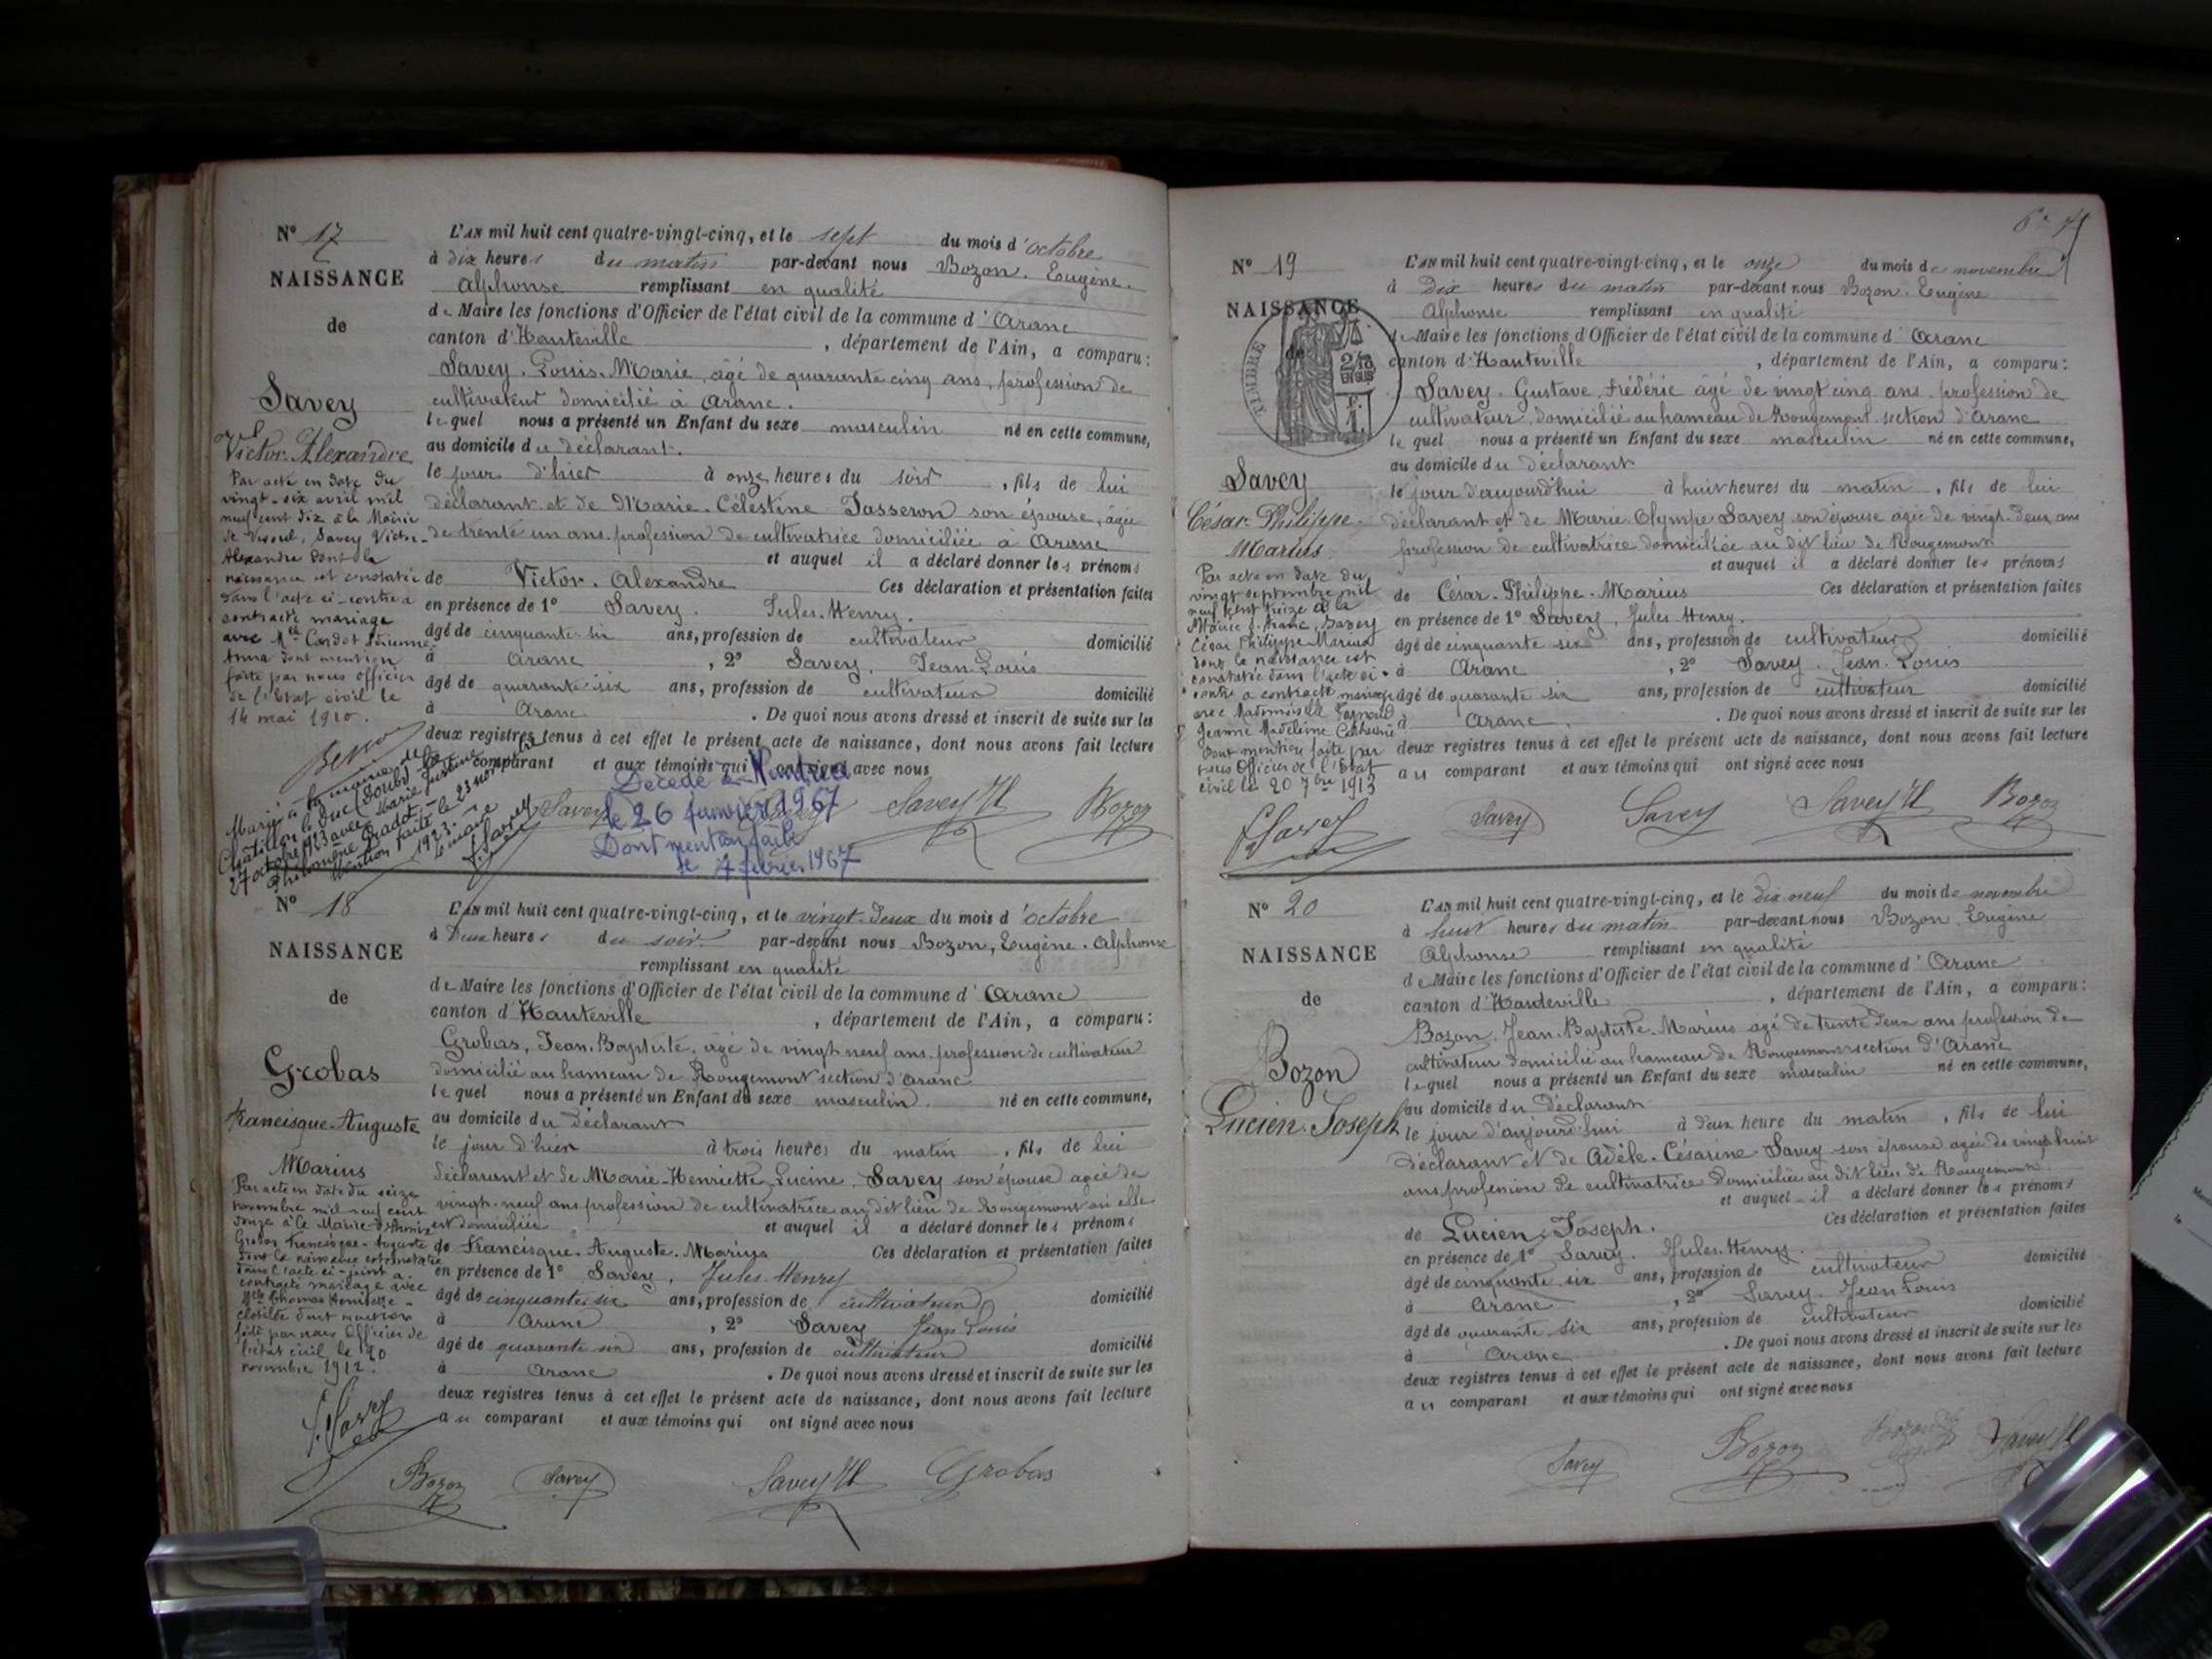 N° 17
NAISSANCE
de
Savey
Victor. Alexandre
Par acte en date du
vingt-six avril mil
neuf cent dix à la Mairie
de Vesoul, Savey Victor-
Alexandre dont la
naissance est constatée
dans l'acte ci-contre a
contracté mariage
avec Mlle Cardot
dont mention
faite par nous officier
de l'Etat civil le
14 mai 1910.
Marié à la mairie de
Châtillon le Duc (Doubs) le
27 octobre 1923 avec Marie Justine
Philomène Gradot
Mention faite le 23 novembre
1923.
L'AN mil huit cent quatre-vingt-cinq, et le sept du mois d'octobre
à dix heures du matin par-devant nous Bozon. Eugène.
Alphonse remplissant en qualité
de Maire les fonctions d'Officier de l'état civil de la commune d'Aranc
canton d'Hauteville, département de l'Ain, a comparu:
Savey. Louis-Marie, âgé de quarante cinq ans, profession de
cultivateur domicilié à Aranc.
lequel nous a présenté un Enfant du sexe masculin né en cette commune,
au domicile du déclarant.
le jour d'hier à onze heures du soir, fils de lui
déclarant et de Marie-Célestine Tasseron son épouse, âgée
de trente un ans profession de cultivatrice domiciliée à Aranc
et auquel il a déclaré donner les prénoms
de Victor. Alexandre Ces déclaration et présentation faites
en présence de 1° Savey. Jules-Henry.
âgé de cinquante-six ans, profession de cultivateur domicilié
à Aranc, 2° Savey. Jean Louis
âgé de quarante six ans, profession de cultivateur domicilié
à Aranc. De quoi nous avons dressé et inscrit de suite sur les
deux registres tenus à cet effet le présent acte de naissance, dont nous avons fait lecture
au comparant et aux témoins qui ont signé avec nous
Décédé à
le 26 janvier 1967
Dont mention faite
le 7 février 1967
Savey Savey H Bozon
N° 18
NAISSANCE
de
Grobas
Francisque-Auguste
Marius
Par acte en date du seize
novembre mil neuf cent
douze à la Mairie
Grobas Francisque-Auguste
dont la naissance est constatée
dans l'acte ci-joint a
contracté mariage avec
Mlle Thomas Henriette-
Clotilde dont mention
faite par nous Officier de
l'état civil le 20
novembre 1912.
L'AN mil huit cent quatre-vingt-cinq, et le vingt-deux du mois d'octobre
à Deux heures du soir par-devant nous Bozon, Eugène. Alphonse
remplissant en qualité
de Maire les fonctions d'Officier de l'état civil de la commune d'Aranc
canton d'Hauteville, département de l'Ain, a comparu:
Grobas, Jean-Baptiste, âgé de vingt neuf ans profession de cultivateur
domicilié au hameau de Rougemont section d'Aranc
lequel nous a présenté un Enfant du sexe masculin. né en cette commune,
au domicile du déclarant
le jour d'hier à trois heures du matin, fils de lui
déclarant et de Marie-Henriette Lucine, Savey son épouse agée de
vingt-neuf ans profession de cultivatrice au dit lieu de Rougemont où elle
est domiciliée et auquel il a déclaré donner les prénoms
de Francisque-Auguste-Marius Ces déclaration et présentation faites
en présence de 1° Savey, Jules Henry
âgé de cinquante six ans, profession de cultivateur domicilié
à Aranc, 2° Savey Jean Louis
âgé de quarante six ans, profession de cultivateur domicilié
à Aranc. De quoi nous avons dressé et inscrit de suite sur les
deux registres tenus à cet effet le présent acte de naissance, dont nous avons fait lecture
au comparant et aux témoins qui ont signé avec nous
Bozon Savey Savey H Grobas
N° 19
NAISSANCE
de
TIMBRE
Savey
César-Philippe.
Marius
Par acte en date du
vingt septembre mil
neuf cent treize à la
Mairie d'Aranc, Savey
César Philippe-Marius
dont la naissance est
constatée dans l'acte ci-
contre a contracté mariage
avec Mademoiselle
Jeanne Madeleine Catherine
dont mention faite par
nous Officier de l'Etat
civil le 20 7bre 1913
L'AN mil huit cent quatre-vingt-cinq, et le onze du mois de novembre
à Dix heures du matin par-devant nous Bozon. Eugène
Alphonse remplissant en qualité
de Maire les fonctions d'Officier de l'état civil de la commune d'Aranc
canton d'Hauteville, département de l'Ain, a comparu:
Savey. Gustave Frédéric âgé de vingt cinq ans profession de
cultivateur, domicilié au hameau de Rougemont section d'Aranc
lequel nous a présenté un Enfant du sexe masculin né en cette commune,
au domicile du déclarant
le jour d'aujourd'hui à huit heures du matin, fils de lui
déclarant et de Marie Olympe Savey son épouse agée de vingt-deux ans
profession de cultivatrice domiciliée au dit lieu de Rougemont
et auquel il a déclaré donner les prénoms
de César-Philippe-Marius Ces déclaration et présentation faites
en présence de 1° Savey, Jules Henry.
âgé de cinquante six ans, profession de cultivateur domicilié
à Aranc, 2° Savey. Jean Louis
âgé de quarante six ans, profession de cultivateur domicilié
à Aranc. De quoi nous avons dressé et inscrit de suite sur les
deux registres tenus à cet effet le présent acte de naissance, dont nous avons fait lecture
au comparant et aux témoins qui ont signé avec nous
Savey Savey Savey H Bozon
N° 20
NAISSANCE
de
Bozon
Lucien. Joseph
L'AN mil huit cent quatre-vingt-cinq, et le dix neuf du mois de novembre
à huit heures du matin par-devant nous Bozon Eugène
Alphonse remplissant en qualité
de Maire les fonctions d'Officier de l'état civil de la commune d'Aranc
canton d'Hauteville, département de l'Ain, a comparu:
Bozon, Jean-Baptiste-Marius âgé de trente deux ans profession de
cultivateur domicilié au hameau de Rougemont section d'Aranc
lequel nous a présenté un Enfant du sexe masculin né en cette commune,
au domicile du déclarant
le jour d'aujourd'hui à deux heure du matin, fils de lui
déclarant et de Adèle-Césarine Savey son épouse agée de vingt huit
ans profession de cultivatrice domiciliée au dit lieu de Rougemont
et auquel il a déclaré donner les prénoms
de Lucien, Joseph. Ces déclaration et présentation faites
en présence de 1° Savey. Jules-Henry.
âgé de cinquante six ans, profession de cultivateur domicilié
à Aranc, 2° Savey. Jean Louis
âgé de quarante six ans, profession de cultivateur domicilié
à Aranc. De quoi nous avons dressé et inscrit de suite sur les
deux registres tenus à cet effet le présent acte de naissance, dont nous avons fait lecture
au comparant et aux témoins qui ont signé avec nous
Savey Bozon Savey H